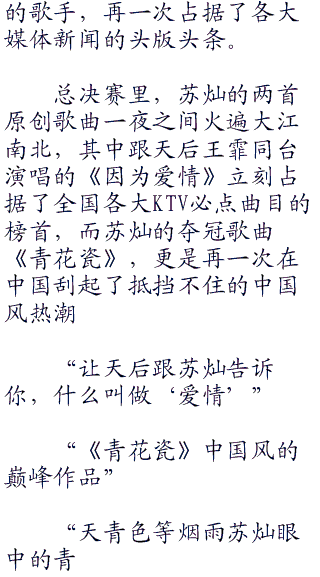 的歌手，再一次占据了各大
媒体新闻的头版头条。
总决赛里，苏灿的两首
原创歌曲一夜之间火遍大江
南北，其中跟天后王霏同台
演唱的《因为爱情》立刻占
据了全国各大KTV必点曲目的
榜首，而苏灿的夺冠歌曲
《青花瓷》，更是再一次在
中国刮起了抵挡不住的中国
风热潮
“让天后跟苏灿告诉
你，什么叫做‘爱情’”
“《青花瓷》中国风的
巅峰作品”
“天青色等烟雨苏灿眼
中的青